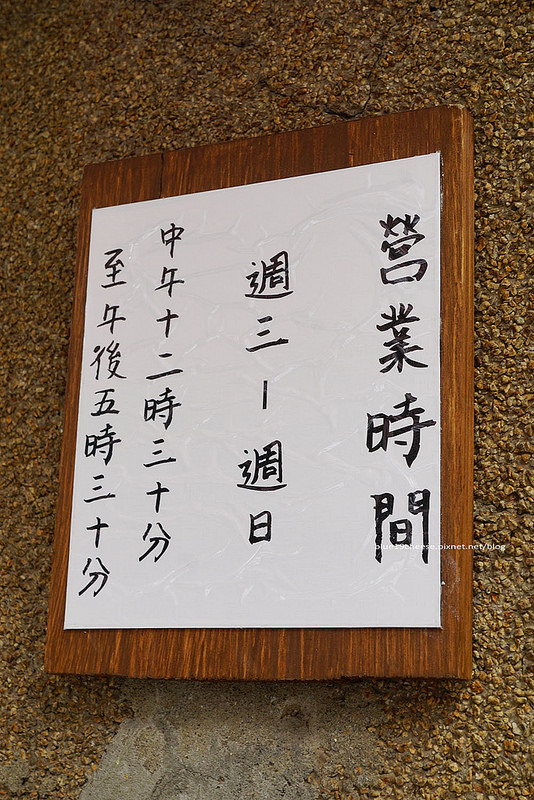 營業時間
週三-週日
中午十二時三十分
至午後五時三十分